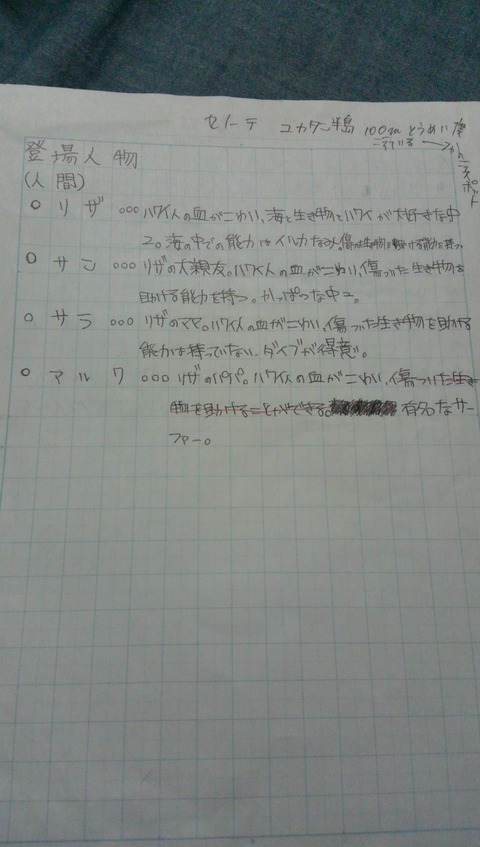 セノーテ ユカタン半島 100m とうめい度
こえている → かんこうスポット
登場人物
(人間)
○ リザ 。。。ハワイ人の血がこわい、海と生き物とハワイが大好きな中
2。海の中での能力はイルカなみ。傷ついた生物を助ける能力を持つ
○ サン 。。。リザの大親友。ハワイ人の血がこわい、傷ついた生き物を
助ける能力を持つ。かっぱつな中2。
○ サラ 。。。リザのママ。ハワイ人の血がこわい、傷ついた生き物を助ける
能力は持っていない、ダイブが得意。
○ アルワ 。。。リザのパパ。ハワイ人の血がこわい、傷ついた生き
物を助けることができる。有名なサー
ファー。